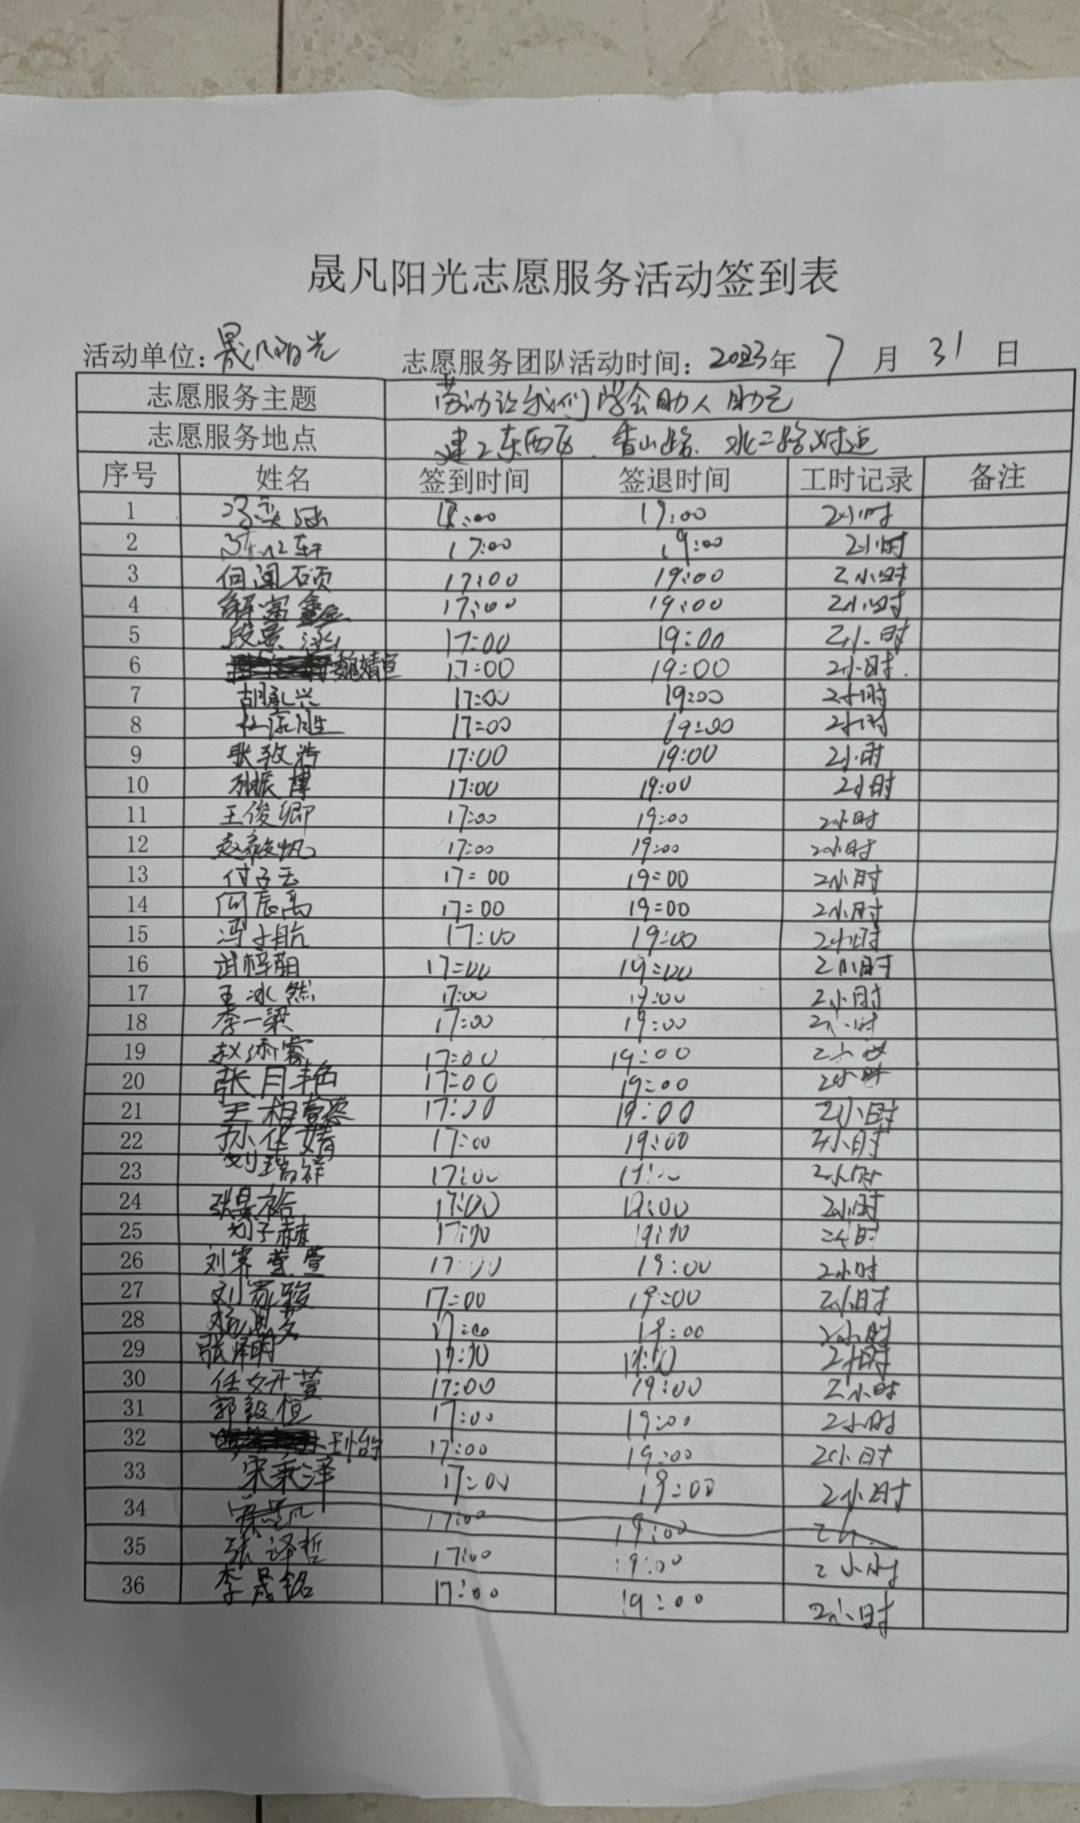 晟凡阳光志愿服务活动签到表
活动单位：晟凡阳光 志愿服务团队活动时间：2023年 7 月 31 日
志愿服务主题 劳动让我们学会助人助己
志愿服务地点 建工东西区、香山路、水二路附近
序号 姓名 签到时间 签退时间 工时记录 备注
1 17:00 19:00 2小时
2 17:00 19:00 2小时
3 何闻硕 17:00 19:00 2小时
4 解富鑫 17:00 19:00 2小时
5 段景泳 17:00 19:00 2小时
6 魏婧宣 17:00 19:00 2小时
7 胡承兴 17:00 19:00 2小时
8 17:00 19:00 2小时
9 张致浩 17:00 19:00 2小时
10 孙振博 17:00 19:00 2小时
11 王俊卿 17:00 19:00 2小时
12 赵毅帆 17:00 19:00 2小时
13 付子玉 17:00 19:00 2小时
14 何辰禹 17:00 19:00 2小时
15 冯子航 17:00 19:00 2小时
16 武梓玥 17:00 19:00 2小时
17 王冰然 17:00 19:00 2小时
18 李一梁 17:00 19:00 2小时
19 17:00 19:00 2小时
20 张月艳 17:00 19:00 2小时
21 17:00 19:00 2小时
22 孙佳婧 17:00 19:00 2小时
23 刘瑞祥 17:00 19:00 2小时
24 张景裕 17:00 19:00 2小时
25 刘子赫 17:00 19:00 2小时
26 刘霏萱萱 17:00 19:00 2小时
27 刘家骏 17:00 19:00 2小时
28 17:00 19:00 2小时
29 张泽明 17:00 19:00 2小时
30 任女开萱 17:00 19:00 2小时
31 郭毅恒 17:00 19:00 2小时
32 王怡宁 17:00 19:00 2小时
33 宋秉泽 17:00 19:00 2小时
34 17:00 19:00
35 张译哲 17:00 19:00 2小时
36 李晟铭 17:00 19:00 2小时